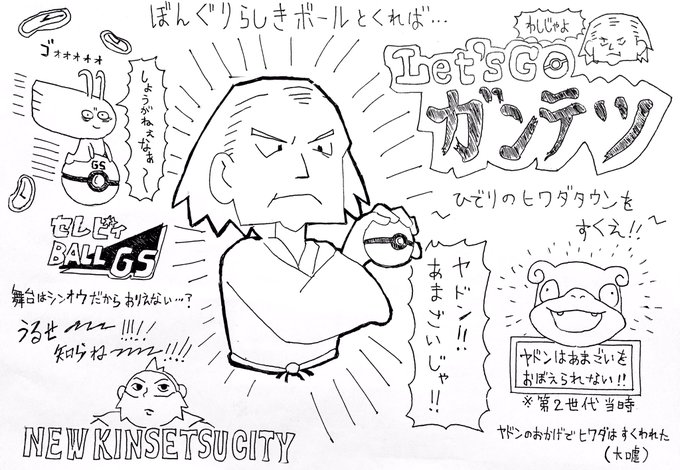 ぼんぐりらしきボールとくれば…
わしじゃよ
Let'sGO
ガンテツ
〜ひでりのヒワダタウンを
すくえ!!〜
ゴォォォォォ
しょうがねぇなぁ〜
GS
セレビィ
BALL GS
舞台はシンオウだからおりえない…?
うるせーー!!!!
知らねーー!!!!
NEW KINSETSU CITY
ヤドン!!
あまごいじゃ!!
ヤドンはあまごいを
おぼえられない!!
※第2世代当時
ヤドンのおかげでヒワダはすくわれた
(大嘘)